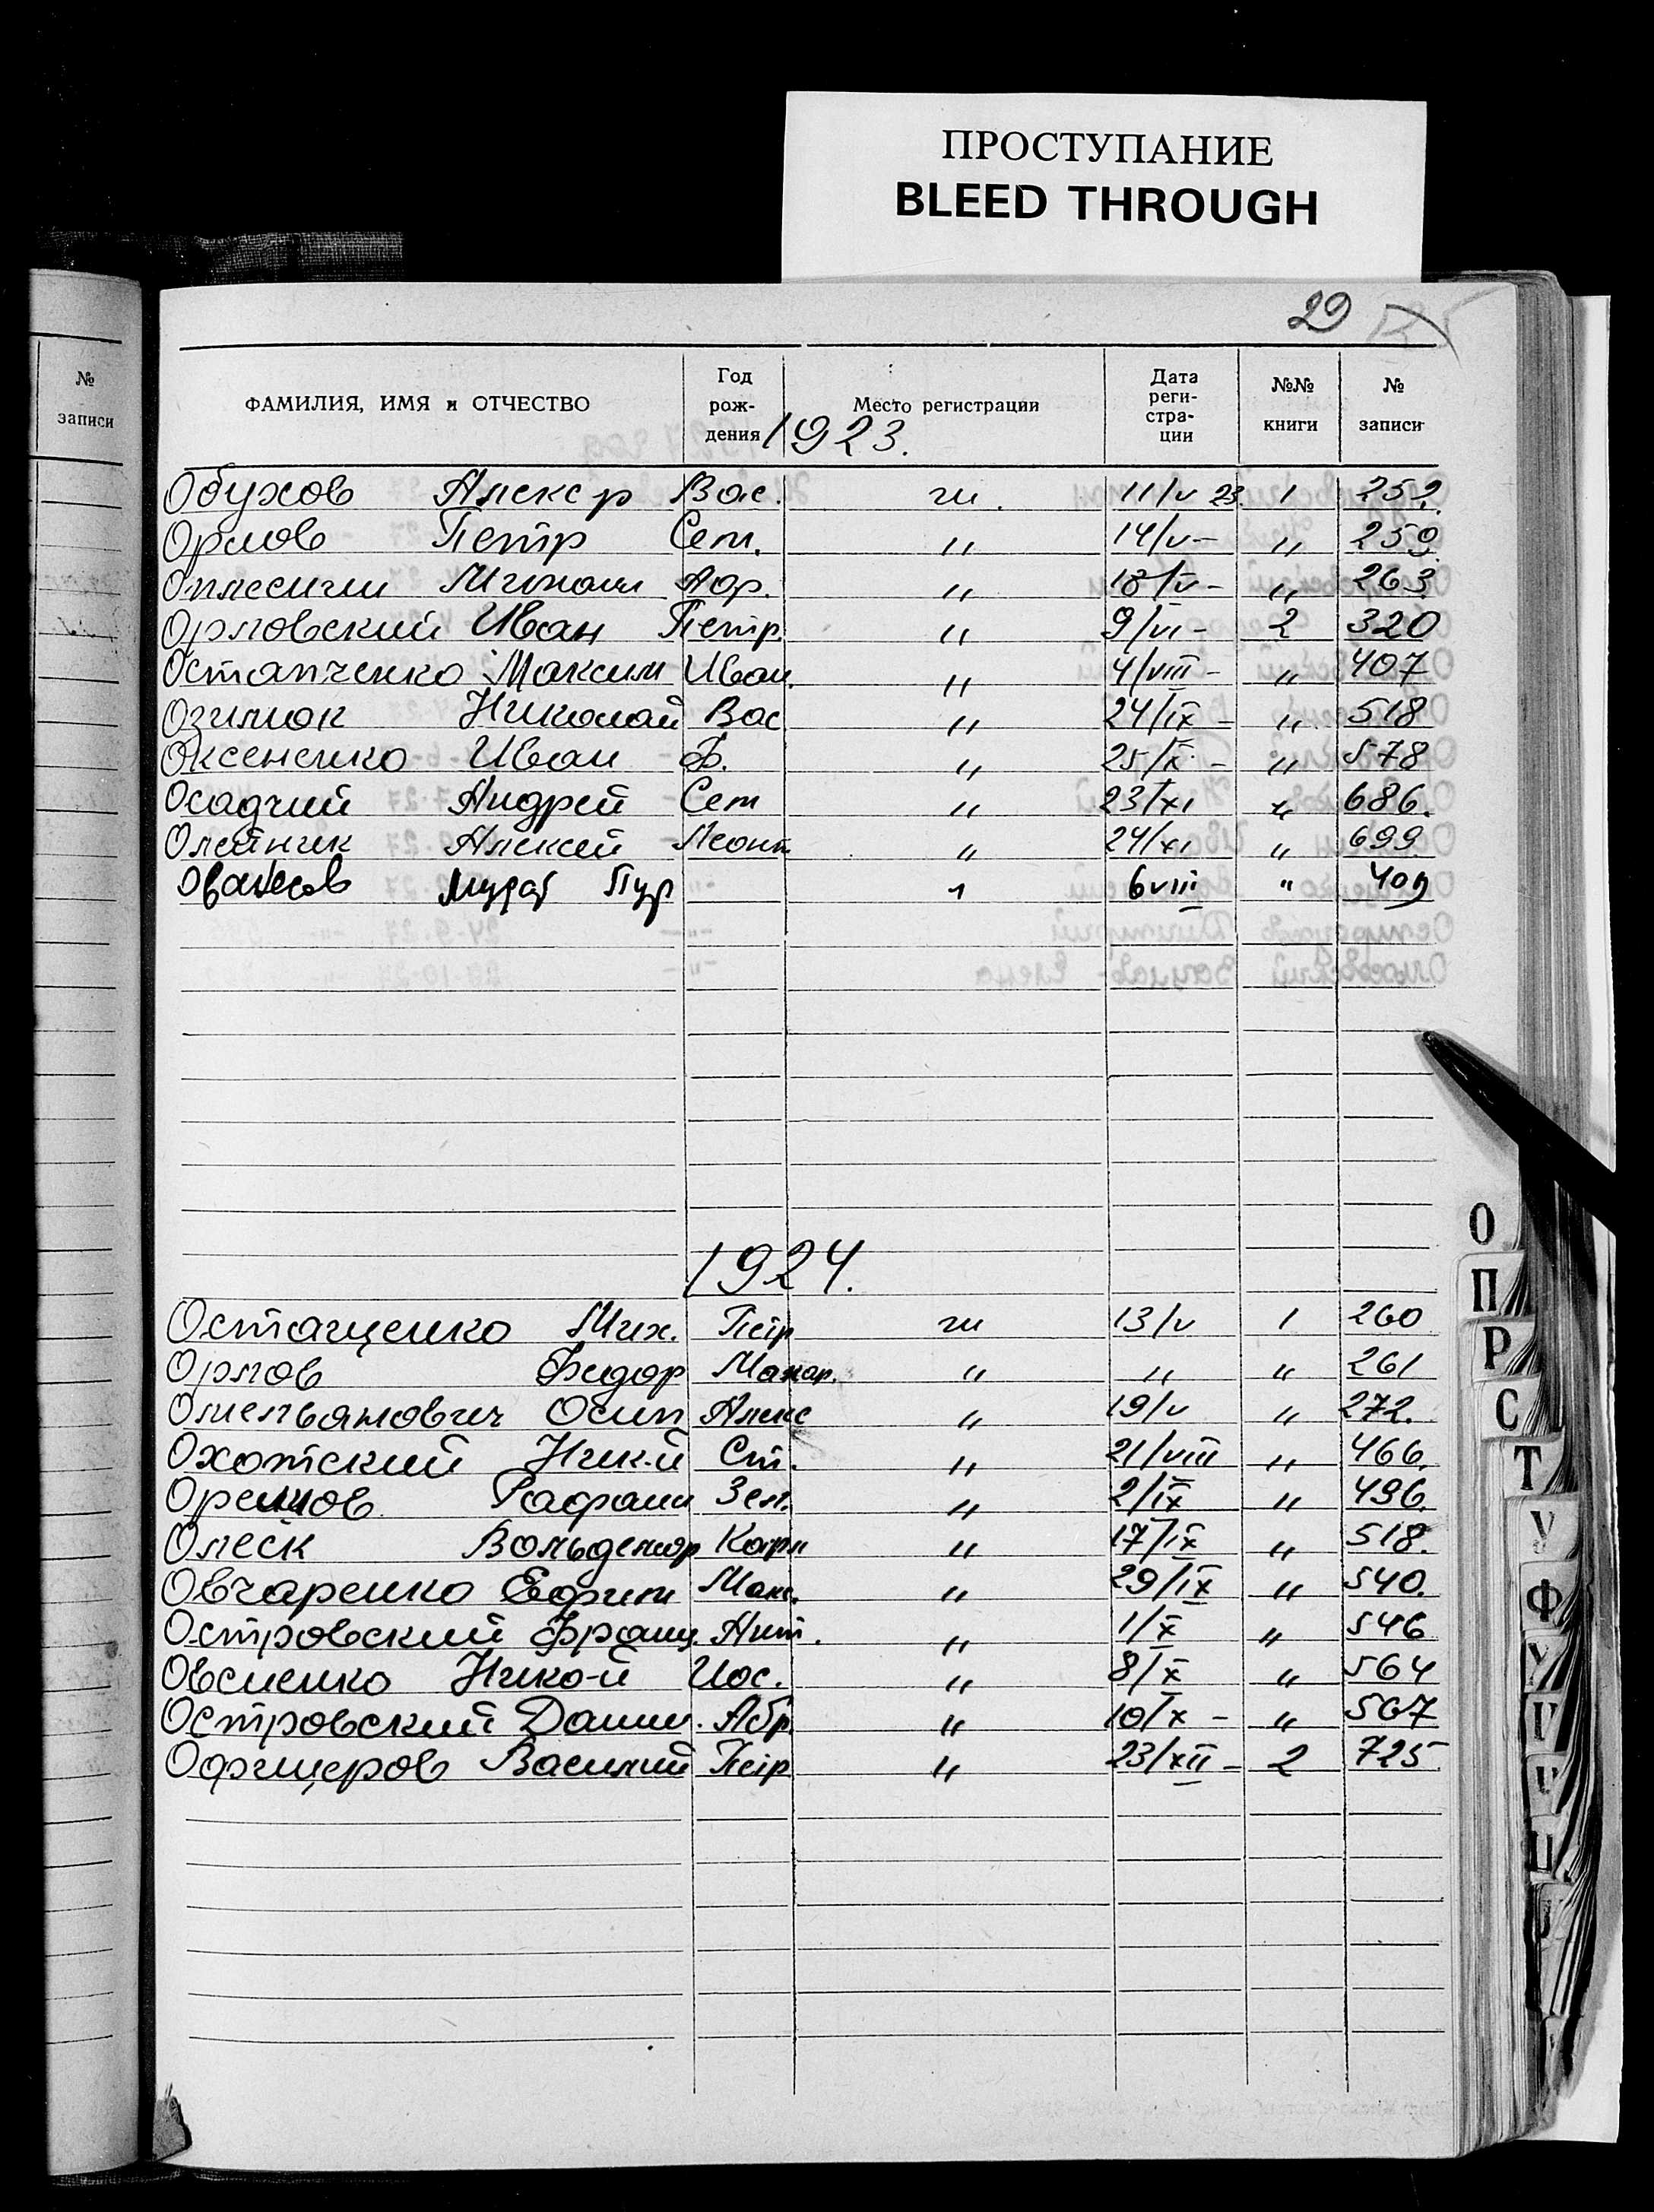 ПРОСТУПАНИЕ
BLEED THROUGH
29
№ записи
ФАМИЛИЯ, ИМЯ и ОТЧЕСТВО Год рождения Место регистрации Дата регистрации №№ книги № записи
1923.
Обухов Алекс р Вас. ги. 11/V 23. 1 252.
Орлов Петр Сем. " 14/V - " 259
Михаил Абр. " 18/V - " 263
Орловский Иван Петр. " 9/VI - 2 320
Остапченко Максим Иван. " 4/VIII - " 407
Озилюк Николай Вас " 24/IX - " 518
Оксененко Иван Ф. " 25/X - " 578
Осадчий Андрей Сем " 23/XI " 686.
Олейник Алексей Леонт " 24/XI " 699
Ованесов " 6 VIII " 409
1924.
Остащенко Мих. Петр ги 13/V 1 260
Орлов Федор Макар. " " " 261
Омельянович Осип Алекс " 19/V " 272.
Охотский Ник-й Ст. " 21/VIII " 466.
Орешов Рафаил Зел. " 2/IX " 496.
Олеск Вольдемар Карл " 17/IX " 518.
Овчаренко Ефим Макс. " 29/IX " 540.
Островский Франц. Ант. " 1/X " 546
Овсиенко Нико-й Иос. " 8/X " 564
Островский Данил. Абр. " 10/X - " 567
Офицеров Василий Петр " 23/XII - 2 725
О
П
Р
С
Т
У
Ф